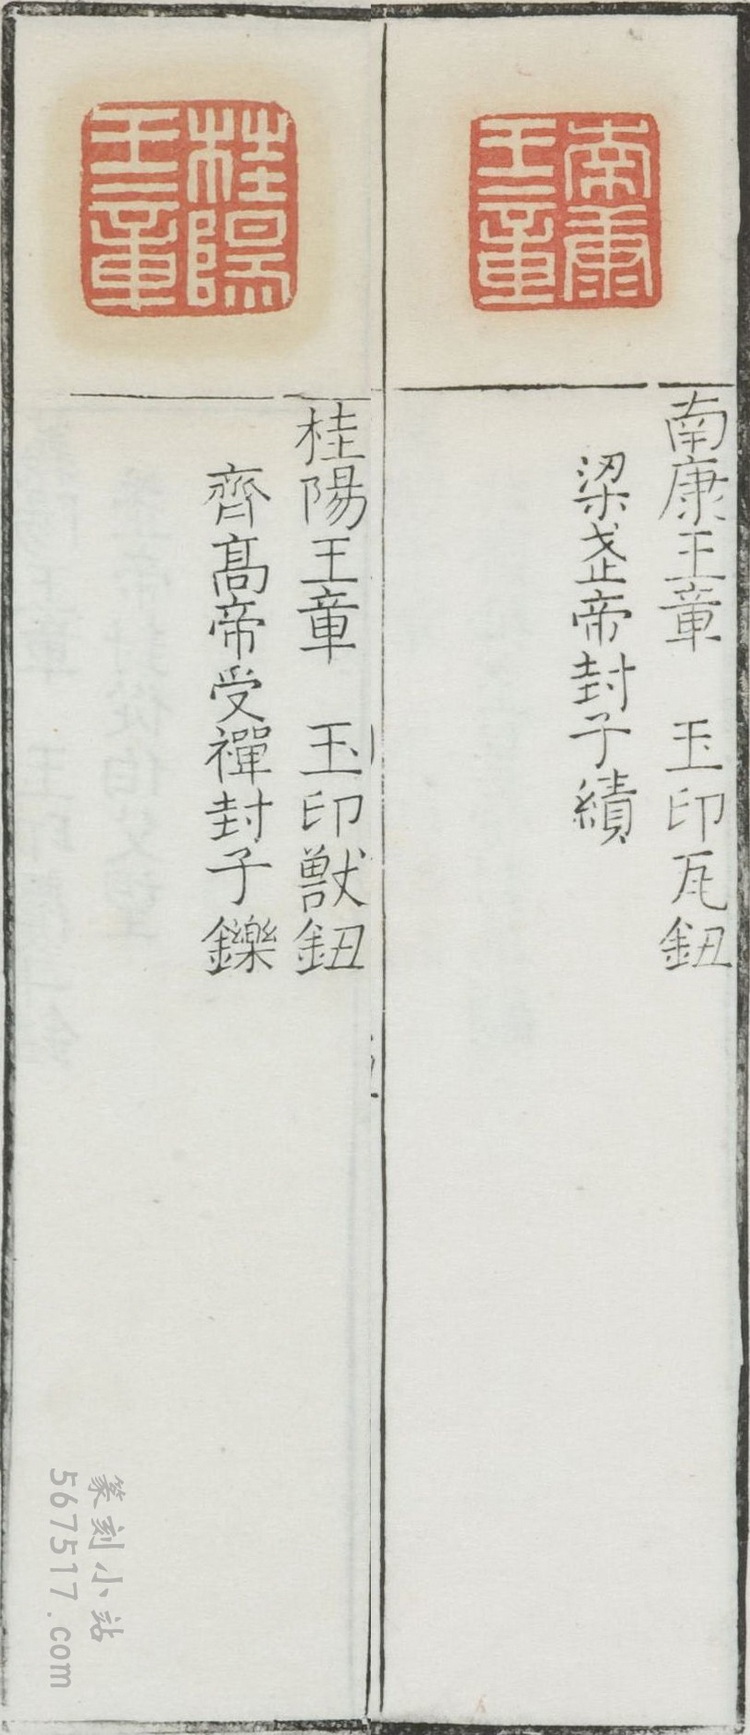 南康
王章
南康王章　玉印瓦鈕
梁武帝封子績
桂陽
王章
桂陽王章　玉印獸鈕
齊高帝受禪封子鑠
篆刻小站
567517.com